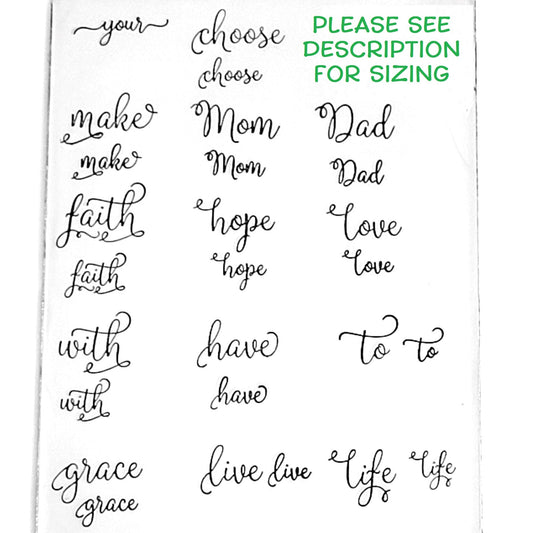 your choose
PLEASE SEE
DESCRIPTION
FOR SIZING
choose
make Mom Dad
make Mom Dad
faith hope love
faith hope love
with have to to
with have
grace live live life life
grace